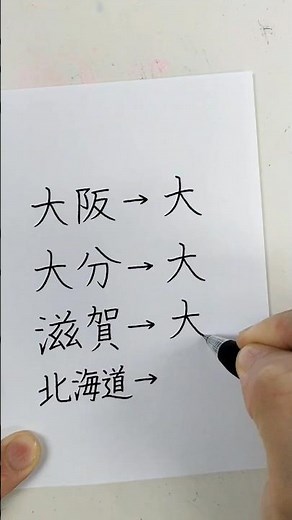 大阪→大
大分→大
滋賀→大
北海道→